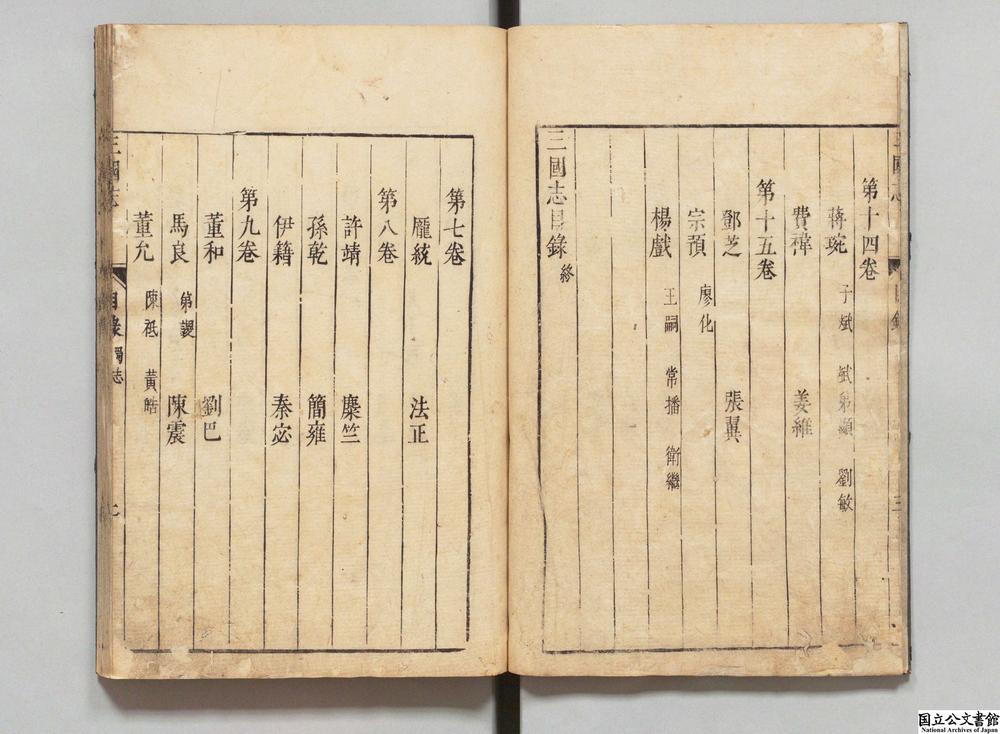 三國志
第十四卷
蔣琬 子斌 斌弟顯 劉敏
費禕 姜維
第十五卷
鄧芝 張翼
宗預 廖化
楊戲 王嗣 常播 衛繼
三國志目錄 終
第七卷
龐統 法正
第八卷
許靖 麋竺
孫乾 簡雍
伊籍 秦宓
第九卷
董和 劉巴
馬良 弟謖 陳震
董允 陳祗 黃皓
三國志 目錄 蜀志
国立公文書館
National Archives of Japan